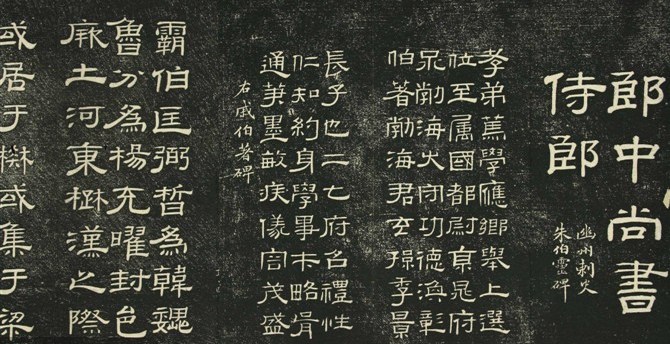 郎中尚書
侍郎
幽州刺史
朱伯靈碑
孝弟蒸學應鄉舉上選
位至屬國都尉京兆府
丞勃海大守功德渙彰
伯著勃海君玄孫季景
長子也二七府名禮性
仁知約身學事本略
通英墨敏疾儀容茂盛
右戚伯著碑
霸伯匡弼晢為韓魏
魯分為楊充曜封邑
厥土河東楚漢之際
或居于楚或集于梁